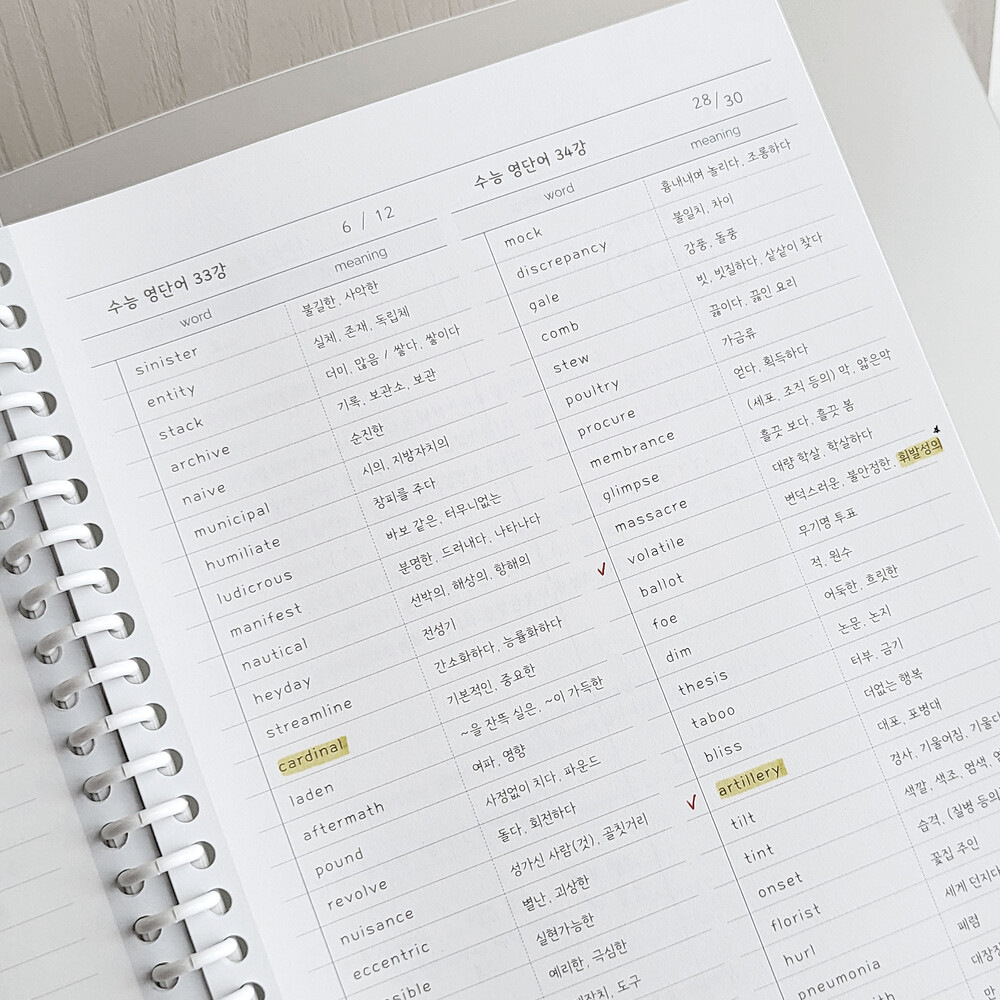 수능 영단어 33강 6 / 12
word meaning
sinister 불길한, 사악한
entity 실체, 존재, 독립체
stack 더미, 많음 / 쌓다, 쌓이다
archive 기록, 보관소, 보관
naive 순진한
municipal 시의, 지방자치의
humiliate 창피를 주다
ludicrous 바보 같은, 터무니없는
manifest 분명한, 드러내다, 나타나다
nautical 선박의, 해상의, 항해의
heyday 전성기
streamline 간소화하다, 능률화하다
cardinal 기본적인, 중요한
laden ~을 잔뜩 실은, ~이 가득한
aftermath 여파, 영향
pound 사정없이 치다, 파운드
revolve 돌다, 회전하다
nuisance 성가신 사람(것), 골칫거리
eccentric 별난, 괴상한
실현가능한
예리한, 극심한
도구
수능 영단어 34강 28/30
word meaning
mock 흉내내며 놀리다, 조롱하다
discrepancy 불일치, 차이
gale 강풍, 돌풍
comb 빗, 빗질하다, 샅샅이 찾다
stew 끓이다, 끓인 요리
poultry 가금류
procure 얻다, 획득하다
membrance (세포, 조직 등의) 막, 얇은막
glimpse 흘끗 보다, 흘끗 봄
massacre 대량 학살, 학살하다
volatile 변덕스러운, 불안정한, 휘발성의
ballot 무기명 투표
foe 적, 원수
dim 어둑한, 흐릿한
thesis 논문, 논지
taboo 터부, 금기
bliss 더없는 행복
artillery 대포, 포병대
tilt 경사, 기울어짐, 기울다
tint 색깔, 색조, 염색,
onset 습격, (질병 등의
florist 꽃집 주인
hurl 세게 던지다
pneumonia 폐렴